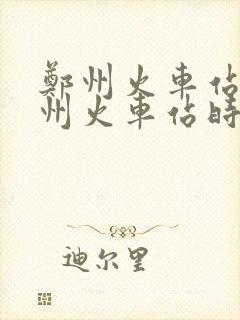 鄭州火車佔
州火車佔時
迪尔里